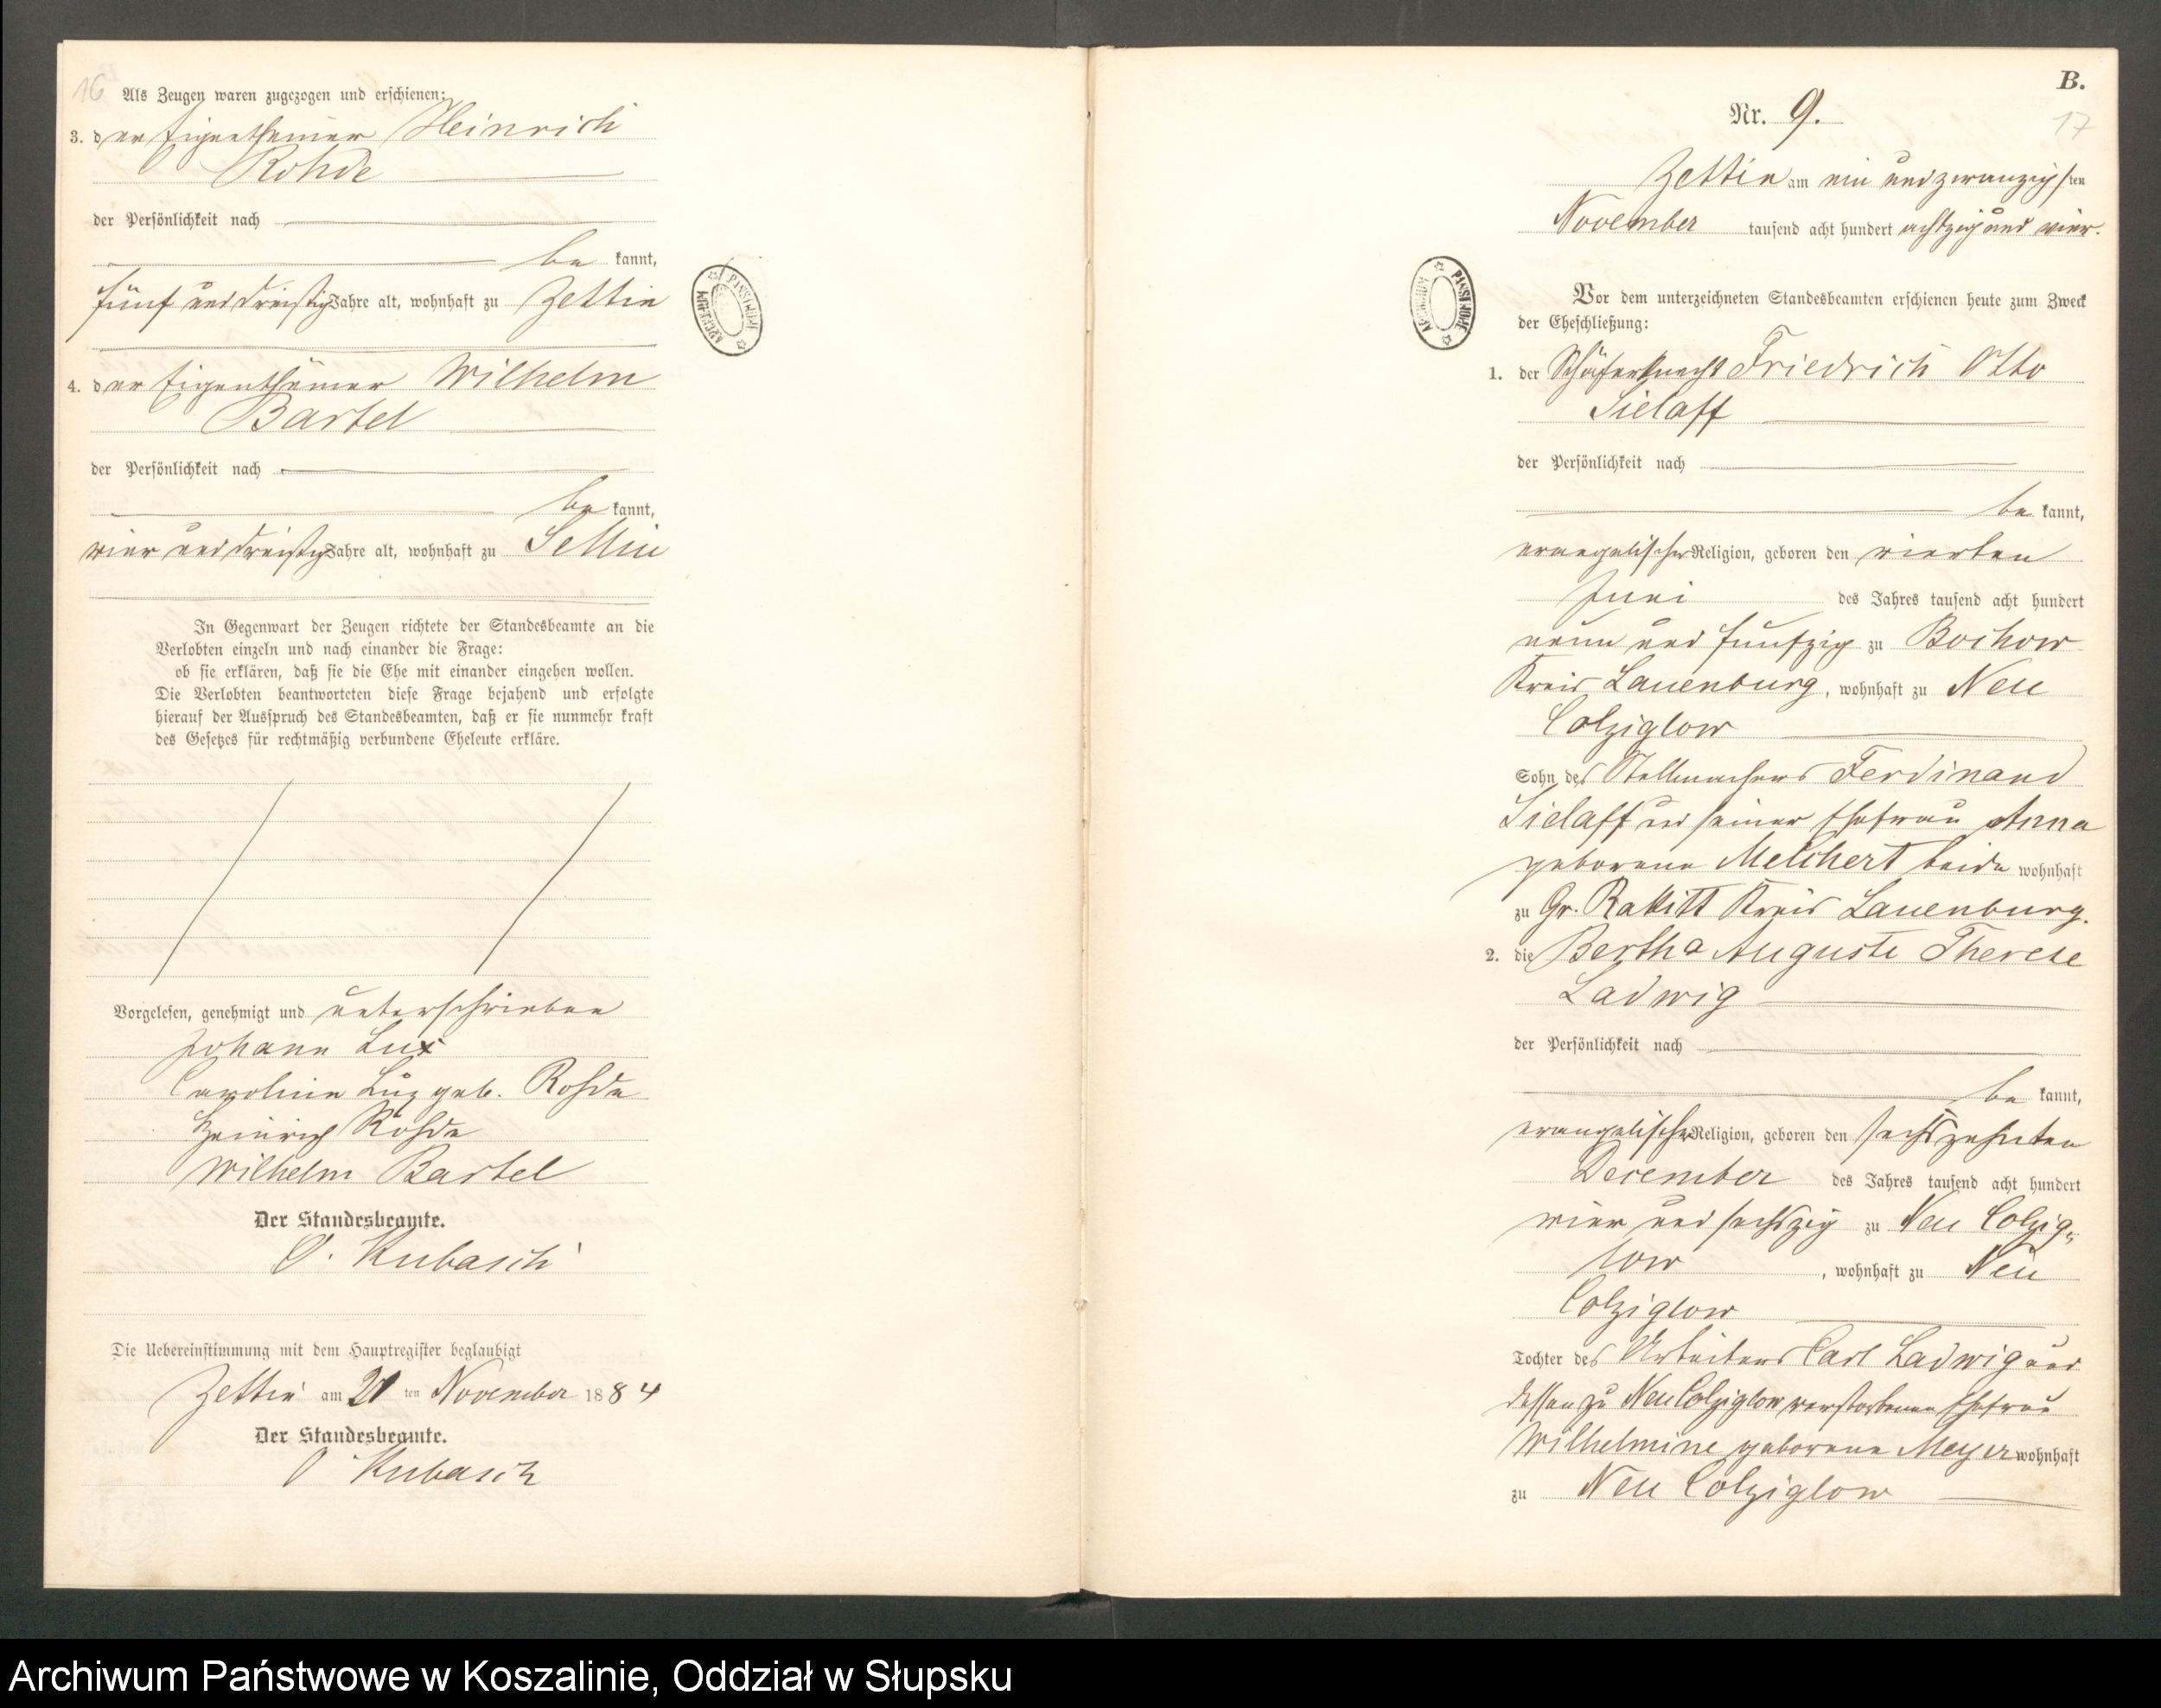 16
Als Zeugen waren zugezogen und erschienen:
3. der Eigenthümer Heinrich
Rohde
der Persönlichkeit nach
be kannt,
fünf und dreißig Jahre alt, wohnhaft zu Zettin
4. der Eigenthümer Wilhelm
Bartel
der Persönlichkeit nach
be kannt,
vier und dreißig Jahre alt, wohnhaft zu Sellin
In Gegenwart der Zeugen richtete der Standesbeamte an die
Verlobten einzeln und nach einander die Frage:
ob sie erklären, daß sie die Ehe mit einander eingehen wollen.
Die Verlobten beantworteten diese Frage bejahend und erfolgte
hierauf der Ausspruch des Standesbeamten, daß er sie nunmehr kraft
des Gesetzes für rechtmäßig verbundene Eheleute erkläre.
Vorgelesen, genehmigt und unterschrieben
Johann Lux
Caroline Lux geb. Rohde
Heinrich Rohde
Wilhelm Bartel
Der Standesbeamte.
O. Kubasch
Die Uebereinstimmung mit dem Hauptregister beglaubigt
Zettin am 21 ten November 1884
Der Standesbeamte.
O Kubasch
ARCHIWUM PAŃSTWOWE
B.
Nr. 9.
17
Zettin am ein und zwanzigsten
November tausend acht hundert achtzig und vier.
ARCHIWUM PAŃSTWOWE
Vor dem unterzeichneten Standesbeamten erschienen heute zum Zweck
der Eheschließung:
1. der Schäferknecht Friedrich Otto
Sielaff
der Persönlichkeit nach
be kannt,
evangelischer Religion, geboren den vierten
Juni des Jahres tausend acht hundert
neun und fünfzig zu Bochow
Kreis Lauenburg, wohnhaft zu Neu
Colziglow
Sohn des Stellmachers Ferdinand
Sielaff und seiner Ehefrau Anna
geborene Melchert beide wohnhaft
zu Gr. Rakitt Kreis Lauenburg.
2. die Bertha Auguste Therese
Ladwig
der Persönlichkeit nach
be kannt,
evangelischer Religion, geboren den sechszehnten
December des Jahres tausend acht hundert
vier und sechszig zu Neu Colzig„
low, wohnhaft zu Neu
Colziglow
Tochter des Arbeiters Carl Ladwig und
dessen zu Neu Colziglow verstorbenen Ehefrau
Wilhelmine geborene Meyer wohnhaft
zu Neu Colziglow
Archiwum Państwowe w Koszalinie, Oddział w Słupsku